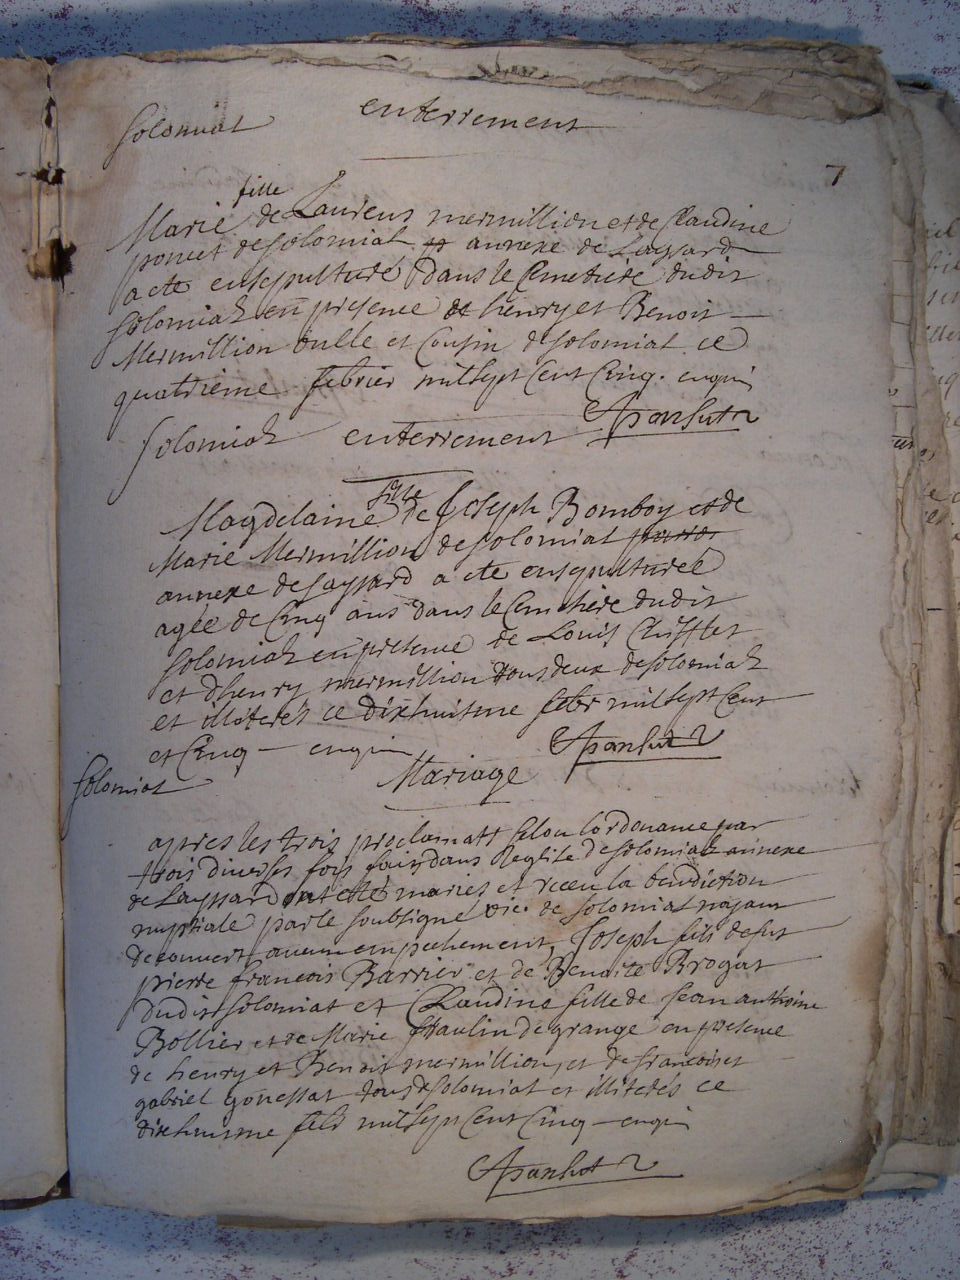 Solomiat enterrement
7
fille
Marie de Laurens mermillion et de Claudine
poncet de solomiat annexe de Layssard
a ete ensepulturé dans le Cimetiere dudit
Solomiat en presence de henry et Benoit
Mermillion oncle et Cousin de solomiat ce
quatrieme febvrier mil sept Cent Cinq.
Solomiat enterrement
fille
Magdelaine de Joseph Bomboy et de
Marie Mermillion de solomiat
annexe de Layssard a ete ensepulturée
agée de Cinq ans dans le Cimetiere dudit
Solomiat en presence de Louis
et d'henry mermillion tous deux de solomiat
et illiterés ce dixhuitme febr mil sept Cent
et Cinq
Solomiat Mariage
apres les trois proclamatt selon lordonance par
trois diverses fois dans leglise de solomiat annexe
de Layssard ont eté mariés et receu la benediction
nuptiale par le soubsigné vic. de solomiat nayant
decouvert aucun empechement, Joseph fils de fut
pierre francois Barrier et de Benoite Brogat
dudit solomiat et Claudine fille de Jean anthoine
Bollier et de Marie de grange en presence
de henry et Benoit mermillion, et de francois et
gabriel gonessat tous de solomiat et illiterés ce
dixhuitme mil sept Cent Cinq